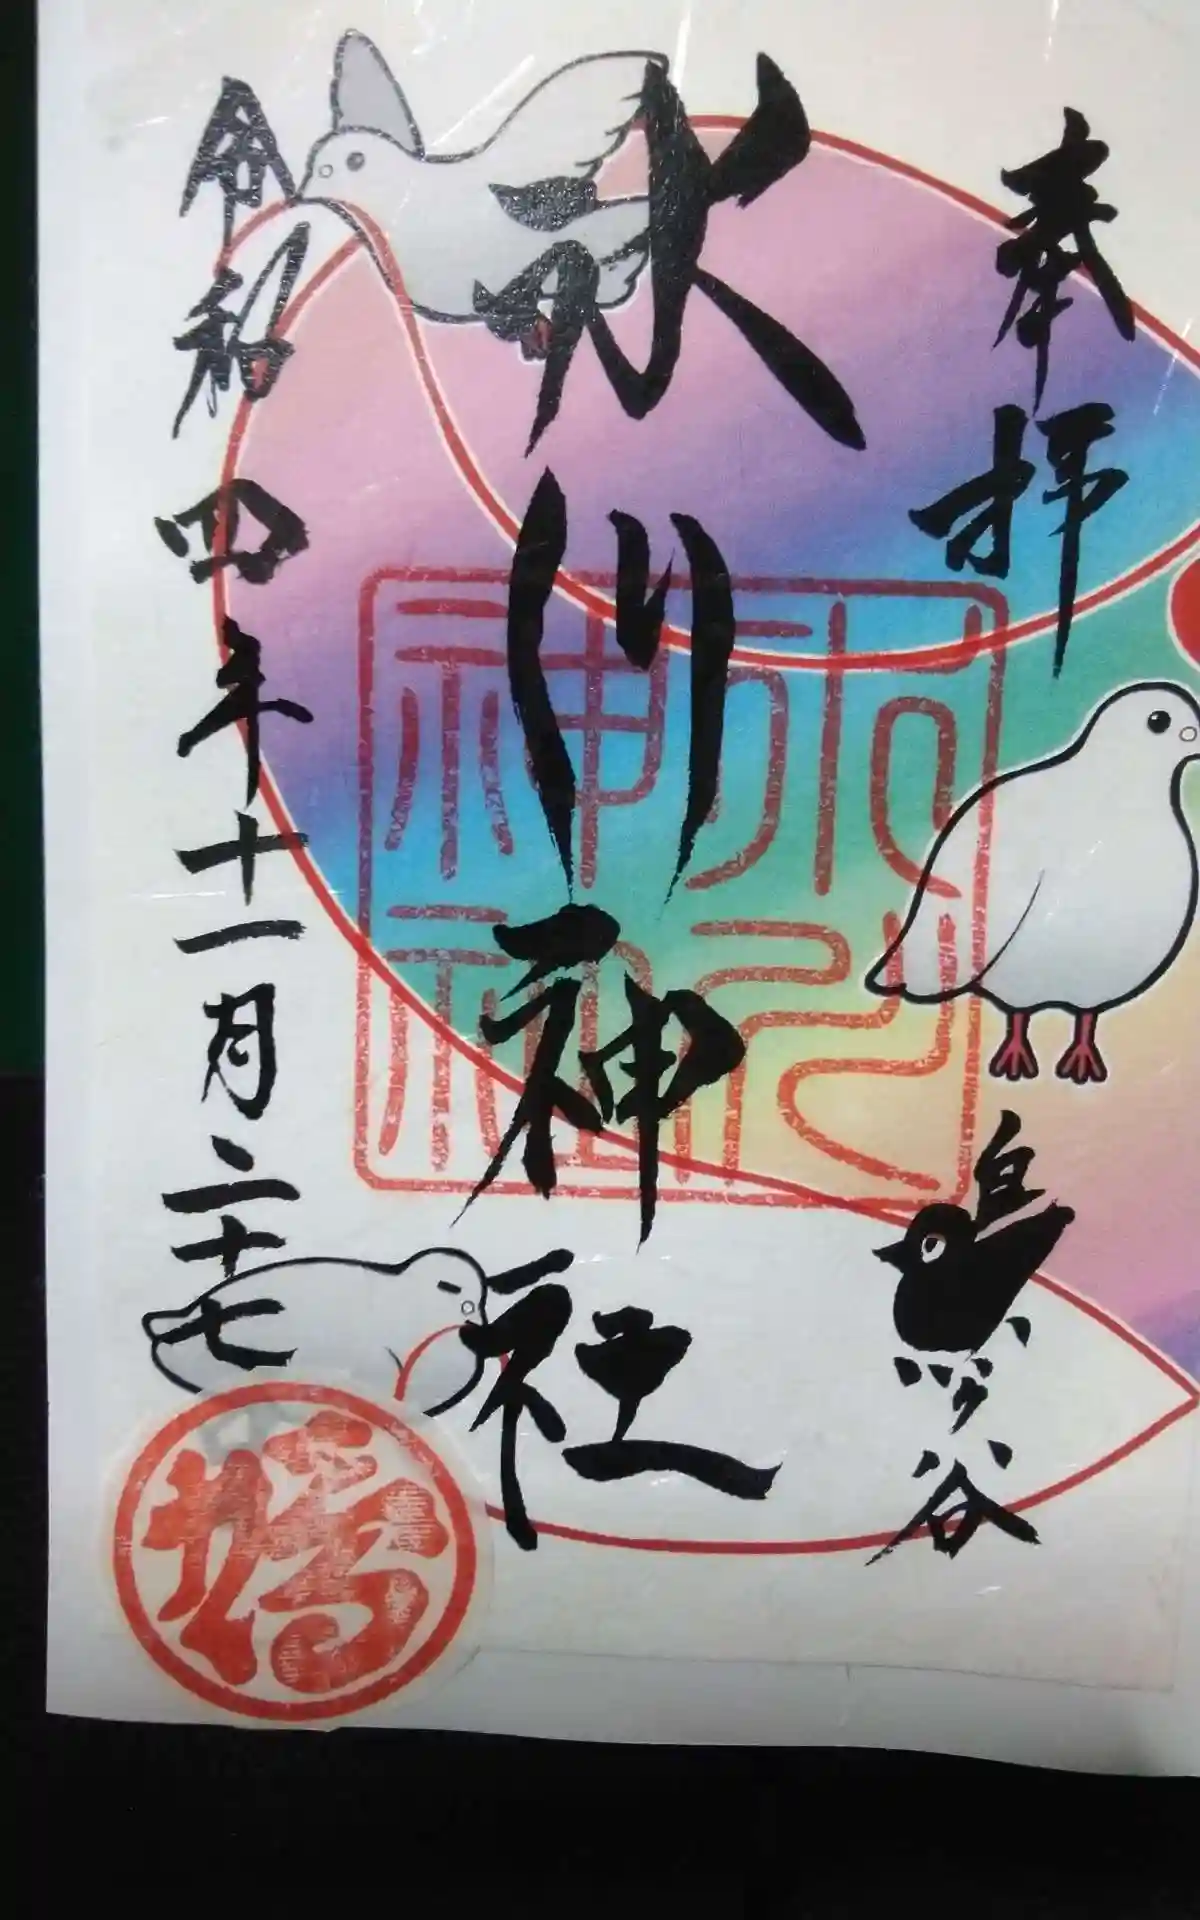 奉拝
鳩ヶ谷
氷川神社
氷川神社
令和四年十一月二十七